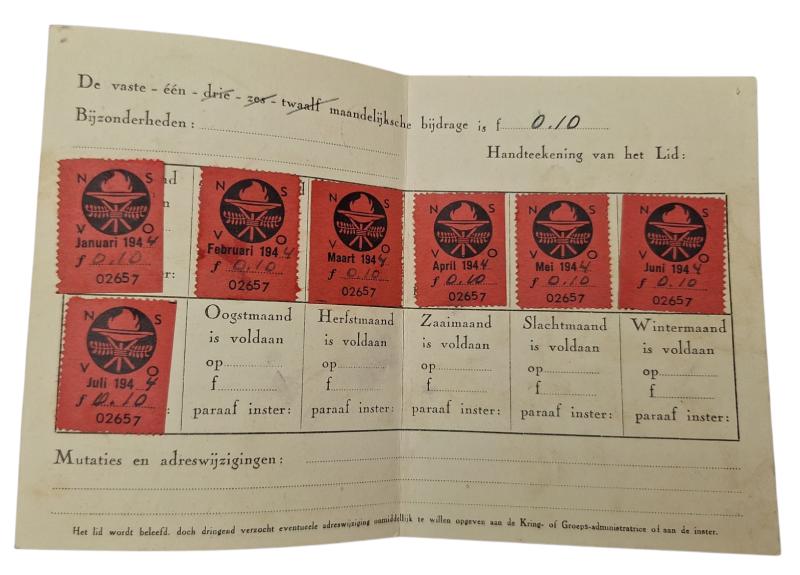 De vaste - één - drie - zes - twaalf maandelijksche bijdrage is f 0.10
Bijzonderheden:
Handteekening van het Lid:
N S
V O
Januari 1944
f 0.10
02657
N S
V O
Februari 1944
f 0.10
02657
N S
V O
Maart 1944
f 0.10
02657
N S
V O
April 1944
f 0.10
02657
N S
V O
Mei 1944
f 0.10
02657
N S
V O
Juni 1944
f 0.10
02657
N S
V O
Juli 1944
f 0.10
02657
Oogstmaand
is voldaan
op
f
paraaf inster:
Herfstmaand
is voldaan
op
f
paraaf inster:
Zaaimaand
is voldaan
op
f
paraaf inster:
Slachtmaand
is voldaan
op
f
paraaf inster:
Wintermaand
is voldaan
op
f
paraaf inster:
Mutaties en adreswijzigingen:
Het lid wordt beleefd, doch dringend verzocht eventueele adreswijziging onmiddellijk te willen opgeven aan de Kring- of Groeps-administratrice of aan de inster.